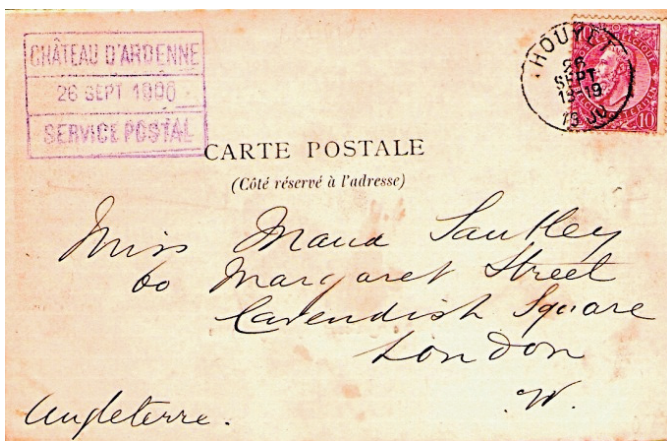 CHÂTEAU D'ARDENNE
26 SEPT 1900
SERVICE POSTAL
HOUYET
26
SEPT
18-19
1900
10
CARTE POSTALE
(Côté réservé à l'adresse)
Miss Maud Santley
60 Margaret Street
Cavendish Square
London
W.
Angleterre.